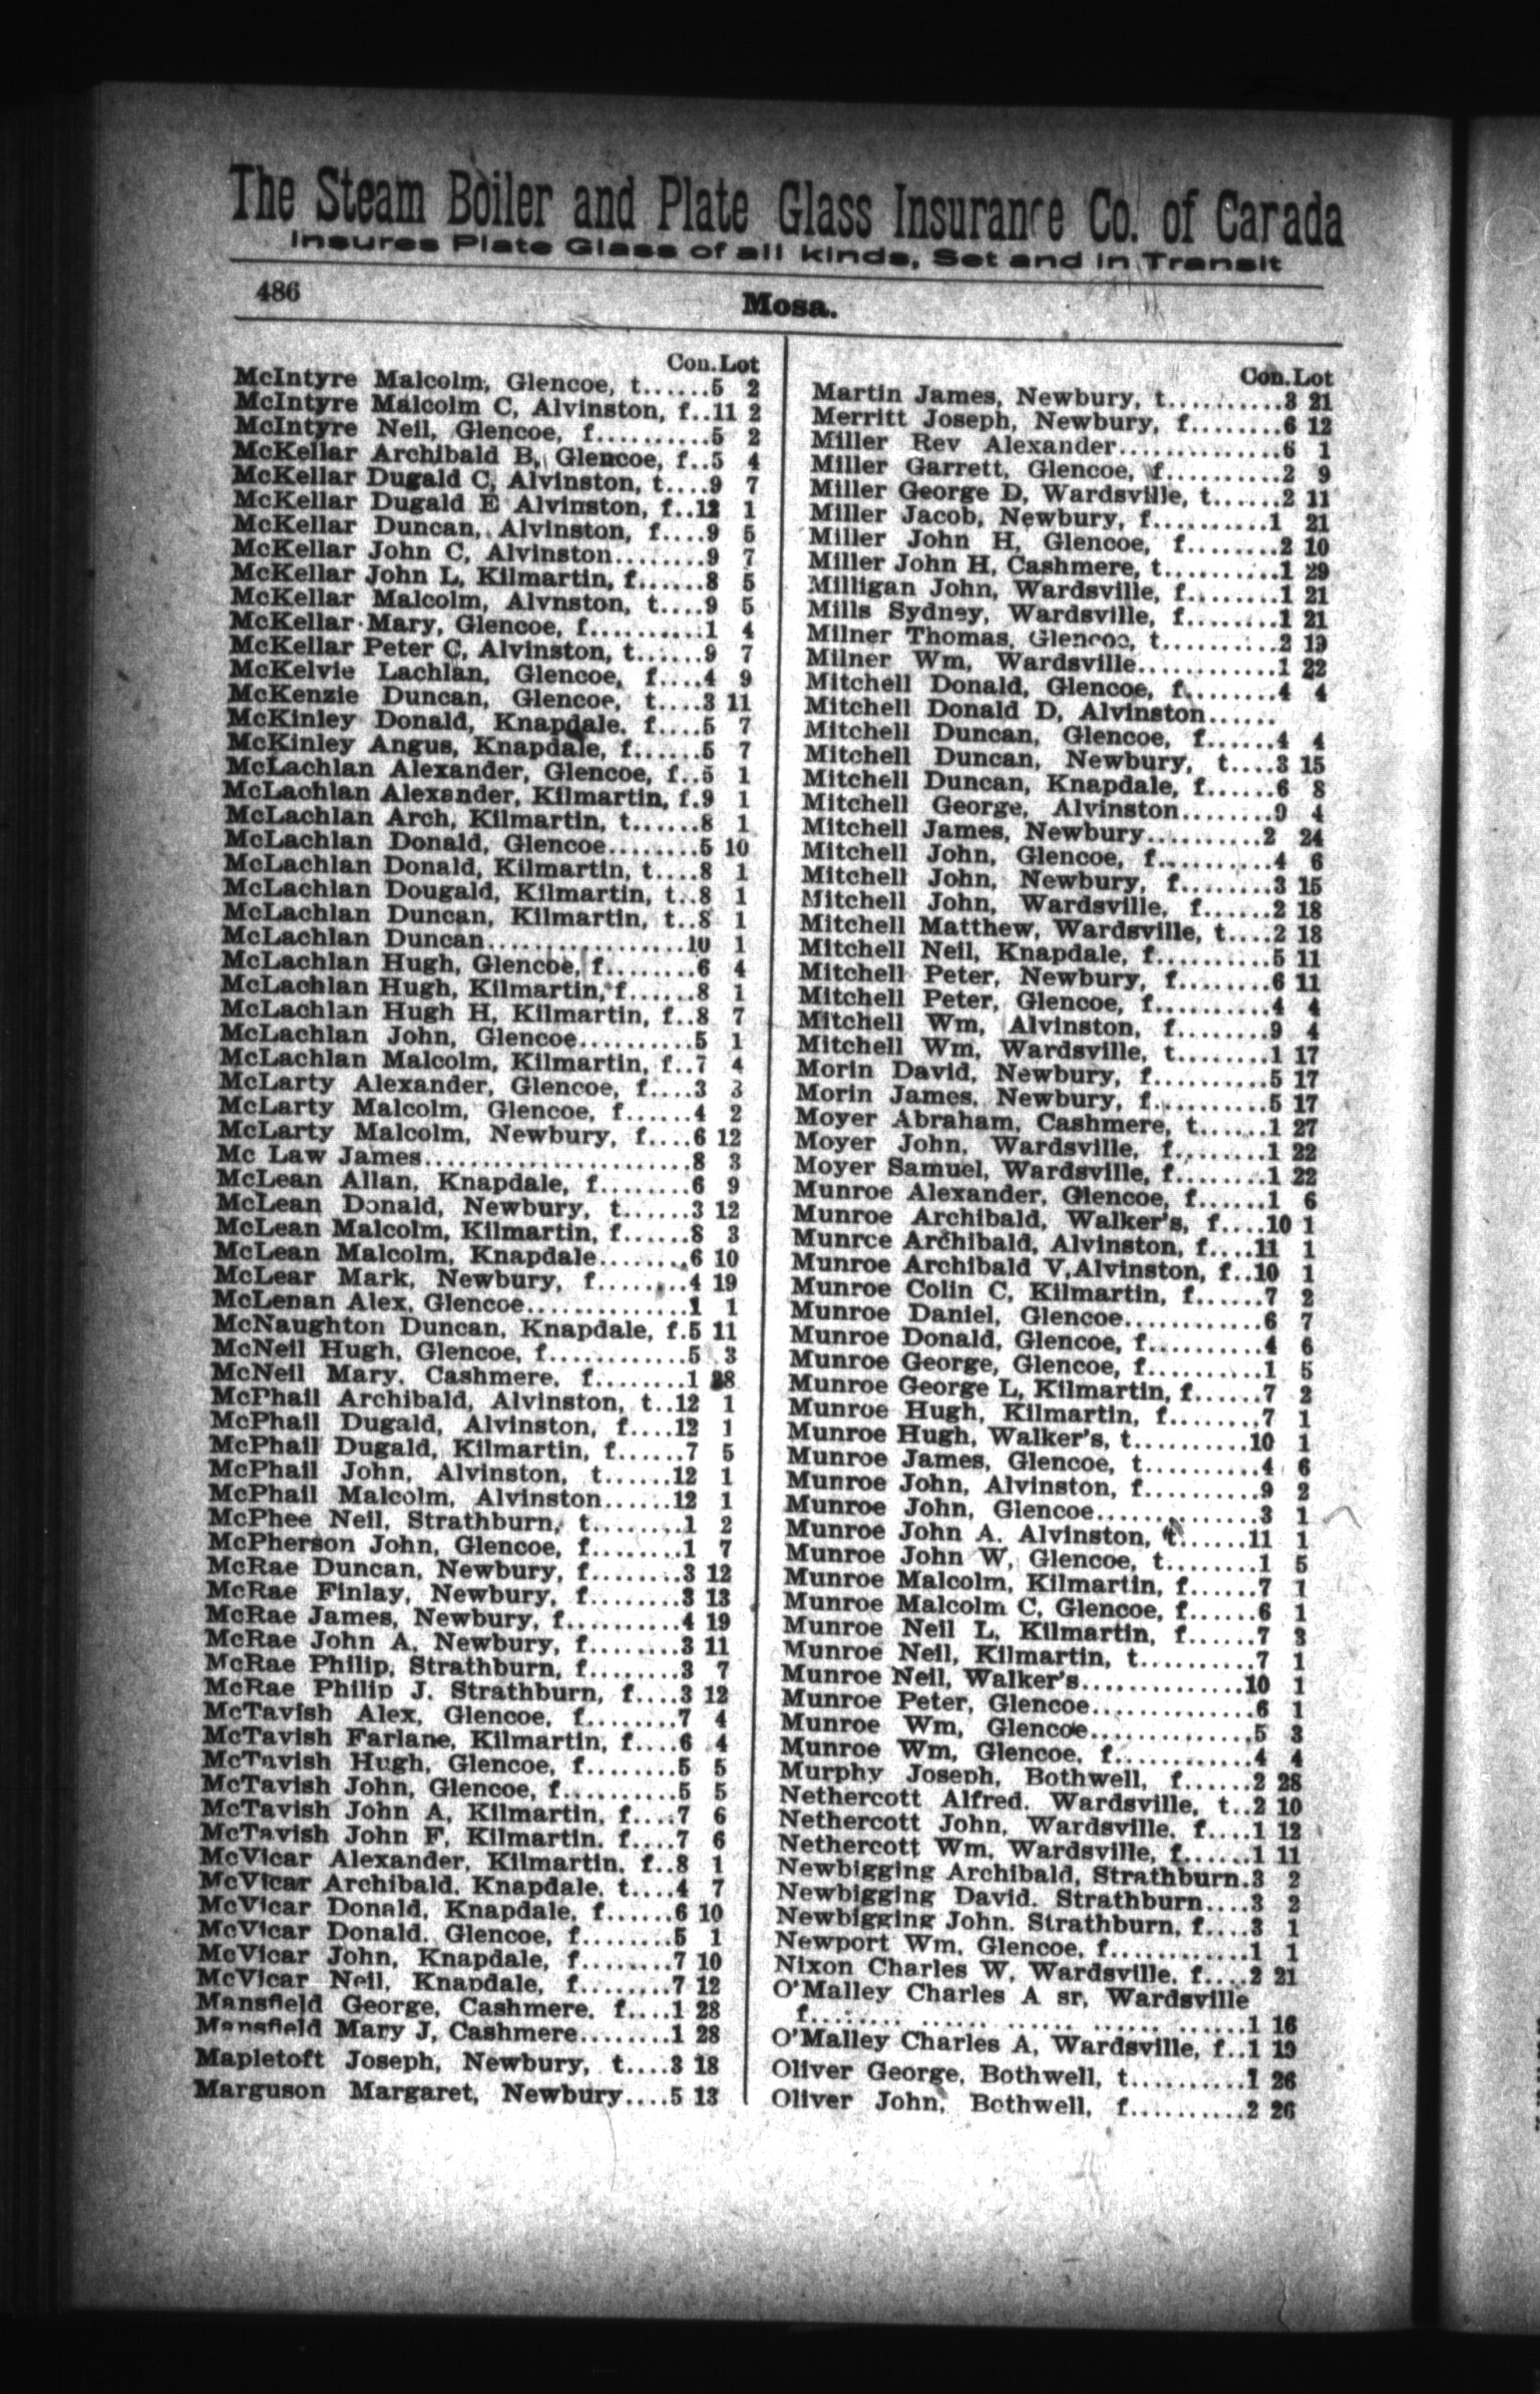 The Steam Boiler and Plate Glass Insurance Co. of Carada
Insures Plate Glass of all kinds, Set and in Transit
486
Mosa.
Con. Lot
McIntyre Malcolm, Glencoe, t......5 2
McIntyre Malcolm C, Alvinston, f..11 2
McIntyre Neil, Glencoe, f..........5 2
McKellar Archibald B, Glencoe, f..5 4
McKellar Dugald C, Alvinston, t....9 7
McKellar Dugald E Alvinston, f..12 1
McKellar Duncan, Alvinston, f....9 5
McKellar John C, Alvinston........9 7
McKellar John L, Kilmartin, f......8 5
McKellar Malcolm, Alvnston, t....9 5
McKellar Mary, Glencoe, f..........1 4
McKellar Peter C, Alvinston, t......9 7
McKelvie Lachlan, Glencoe, f....4 9
McKenzie Duncan, Glencoe, t....3 11
McKinley Donald, Knapdale, f....5 7
McKinley Angus, Knapdale, f......5 7
McLachlan Alexander, Glencoe, f..5 1
McLachlan Alexander, Kilmartin, f.9 1
McLachlan Arch, Kilmartin, t......8 1
McLachlan Donald, Glencoe........5 10
McLachlan Donald, Kilmartin, t....8 1
McLachlan Dougald, Kilmartin, t..8 1
McLachlan Duncan, Kilmartin, t..8 1
McLachlan Duncan..................10 1
McLachlan Hugh, Glencoe, f........6 4
McLachlan Hugh, Kilmartin, f......8 1
McLachlan Hugh H, Kilmartin, f..8 7
McLachlan John, Glencoe..........5 1
McLachlan Malcolm, Kilmartin, f..7 4
McLarty Alexander, Glencoe, f....3 3
McLarty Malcolm, Glencoe, f......4 2
McLarty Malcolm, Newbury, f....6 12
Mc Law James........................8 3
McLean Allan, Knapdale, f........6 9
McLean Donald, Newbury, t......3 12
McLean Malcolm, Kilmartin, f......8 3
McLean Malcolm, Knapdale........6 10
McLear Mark, Newbury, f........4 19
McLenan Alex. Glencoe..............1 1
McNaughton Duncan, Knapdale, f.5 11
McNeil Hugh, Glencoe, f............5 3
McNeil Mary, Cashmere, f........1 28
McPhail Archibald, Alvinston, t..12 1
McPhail Dugald, Alvinston, f....12 1
McPhail Dugald, Kilmartin, f......7 5
McPhail John, Alvinston, t......12 1
McPhail Malcolm, Alvinston......12 1
McPhee Neil, Strathburn, t........1 2
McPherson John, Glencoe, f........1 7
McRae Duncan, Newbury, f........3 12
McRae Finlay, Newbury, f........3 13
McRae James, Newbury, f..........4 19
McRae John A, Newbury, f........3 11
McRae Philip, Strathburn, f........3 7
McRae Philip J. Strathburn, f....3 12
McTavish Alex, Glencoe, f........7 4
McTavish Farlane, Kilmartin, f....6 4
McTavish Hugh, Glencoe, f........5 5
McTavish John, Glencoe, f..........5 5
McTavish John A, Kilmartin, f....7 6
McTavish John F, Kilmartin. f....7 6
McVicar Alexander, Kilmartin. f..8 1
McVicar Archibald. Knapdale. t....4 7
McVicar Donald, Knapdale, f......6 10
McVicar Donald. Glencoe, f........5 1
McVicar John, Knapdale, f........7 10
McVicar Neil, Knapdale, f........7 12
Mansfield George, Cashmere. f....1 28
Mansfield Mary J, Cashmere........1 28
Mapletoft Joseph, Newbury, t....3 18
Marguson Margaret, Newbury....5 13
Con. Lot
Martin James, Newbury, t..........3 21
Merritt Joseph, Newbury, f........6 12
Miller Rev Alexander..............6 1
Miller Garrett, Glencoe, f..........2 9
Miller George D, Wardsville, t......2 11
Miller Jacob, Newbury, f..........1 21
Miller John H, Glencoe, f........2 10
Miller John H, Cashmere, t..........1 29
Milligan John, Wardsville, f........1 21
Mills Sydney, Wardsville, f........1 21
Milner Thomas, Glencoe, t..........2 19
Milner Wm, Wardsville............1 22
Mitchell Donald, Glencoe, f........4 4
Mitchell Donald D, Alvinston......
Mitchell Duncan, Glencoe, f......4 4
Mitchell Duncan, Newbury, t....3 15
Mitchell Duncan, Knapdale, f......6 8
Mitchell George, Alvinston........9 4
Mitchell James, Newbury..........2 24
Mitchell John, Glencoe, f..........4 6
Mitchell John, Newbury, f........3 15
Mitchell John, Wardsville, f......2 18
Mitchell Matthew, Wardsville, t....2 18
Mitchell Neil, Knapdale, f..........5 11
Mitchell Peter, Newbury, f........6 11
Mitchell Peter, Glencoe, f..........4 4
Mitchell Wm, Alvinston, f........9 4
Mitchell Wm, Wardsville, t........1 17
Morin David, Newbury, f..........5 17
Morin James, Newbury, f..........5 17
Moyer Abraham, Cashmere, t......1 27
Moyer John, Wardsville, f........1 22
Moyer Samuel, Wardsville, f........1 22
Munroe Alexander, Glencoe, f......1 6
Munroe Archibald, Walker's, f....10 1
Munrce Archibald, Alvinston, f....11 1
Munroe Archibald V, Alvinston, f..10 1
Munroe Colin C, Kilmartin, f......7 2
Munroe Daniel, Glencoe............6 7
Munroe Donald, Glencoe, f..........4 6
Munroe George, Glencoe, f..........1 5
Munroe George L, Kilmartin, f......7 2
Munroe Hugh, Kilmartin, f........7 1
Munroe Hugh, Walker's, t..........10 1
Munroe James, Glencoe, t..........4 6
Munroe John, Alvinston, f..........9 2
Munroe John, Glencoe..............3 1
Munroe John A. Alvinston, t......11 1
Munroe John W, Glencoe, t........1 5
Munroe Malcolm, Kilmartin, f......7 1
Munroe Malcolm C, Glencoe, f......6 1
Munroe Neil L, Kilmartin, f......7 3
Munroe Neil, Kilmartin, t..........7 1
Munroe Neil, Walker's..............10 1
Munroe Peter, Glencoe..............6 1
Munroe Wm, Glencoe..............5 3
Munroe Wm, Glencoe, f............4 4
Murphy Joseph, Bothwell, f......2 28
Nethercott Alfred. Wardsville, t..2 10
Nethercott John, Wardsville. f....1 12
Nethercott Wm, Wardsville, f......1 11
Newbigging Archibald, Strathburn.3 2
Newbigging David. Strathburn....3 2
Newbigging John. Strathburn, f....3 1
Newport Wm. Glencoe, f............1 1
Nixon Charles W, Wardsville. f....2 21
O'Malley Charles A sr, Wardsville
f....................................1 16
O'Malley Charles A, Wardsville, f..1 19
Oliver George, Bothwell, t..........1 26
Oliver John, Bothwell, f..........2 26